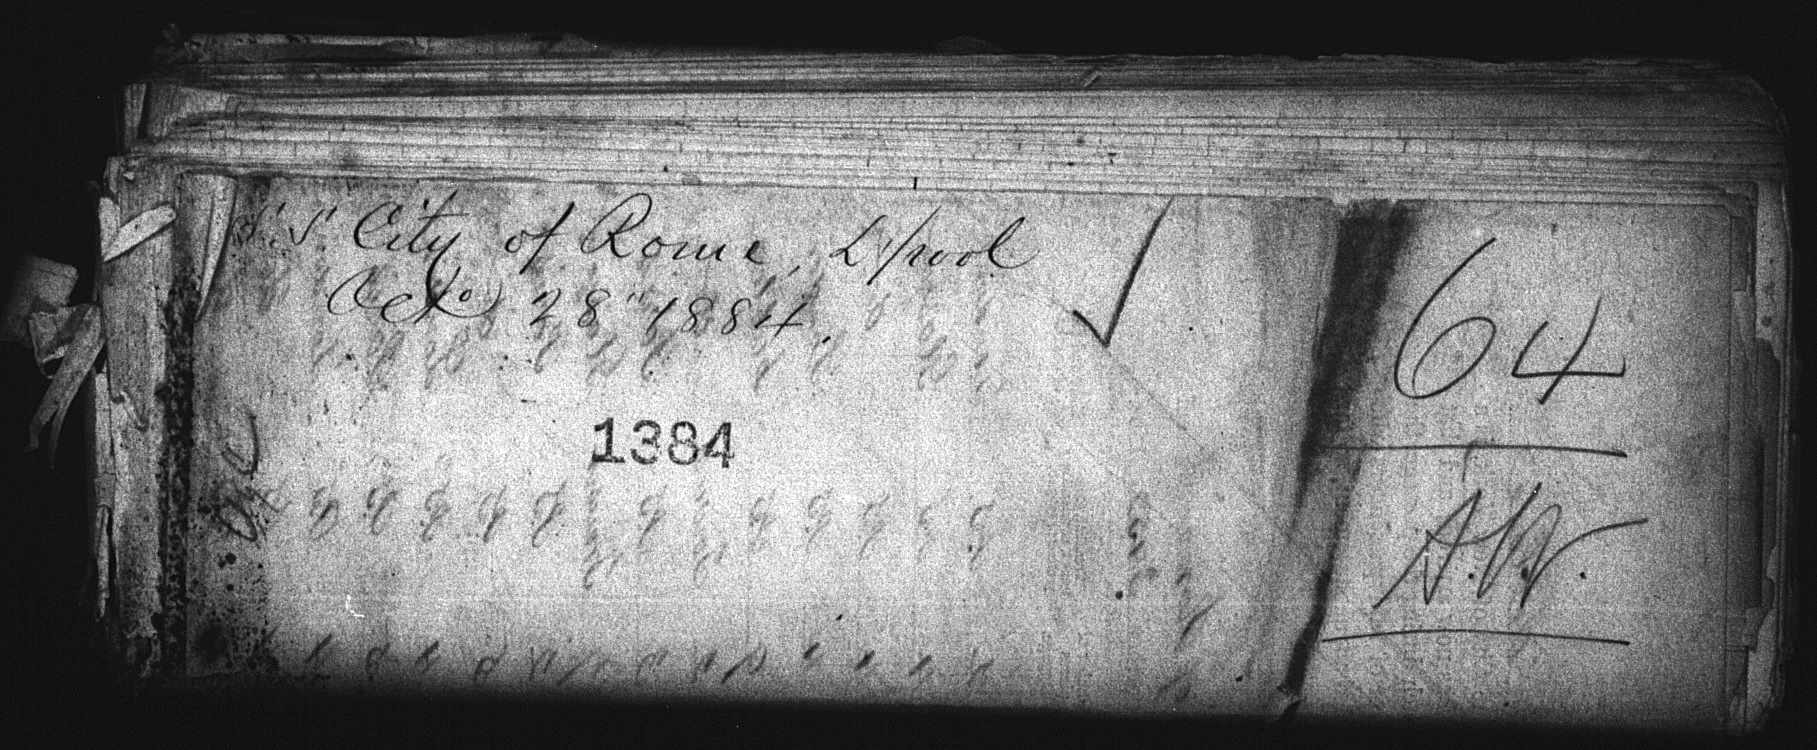 S.S. City of Rome, L'pool
Octo 28" 1884,
1384
64